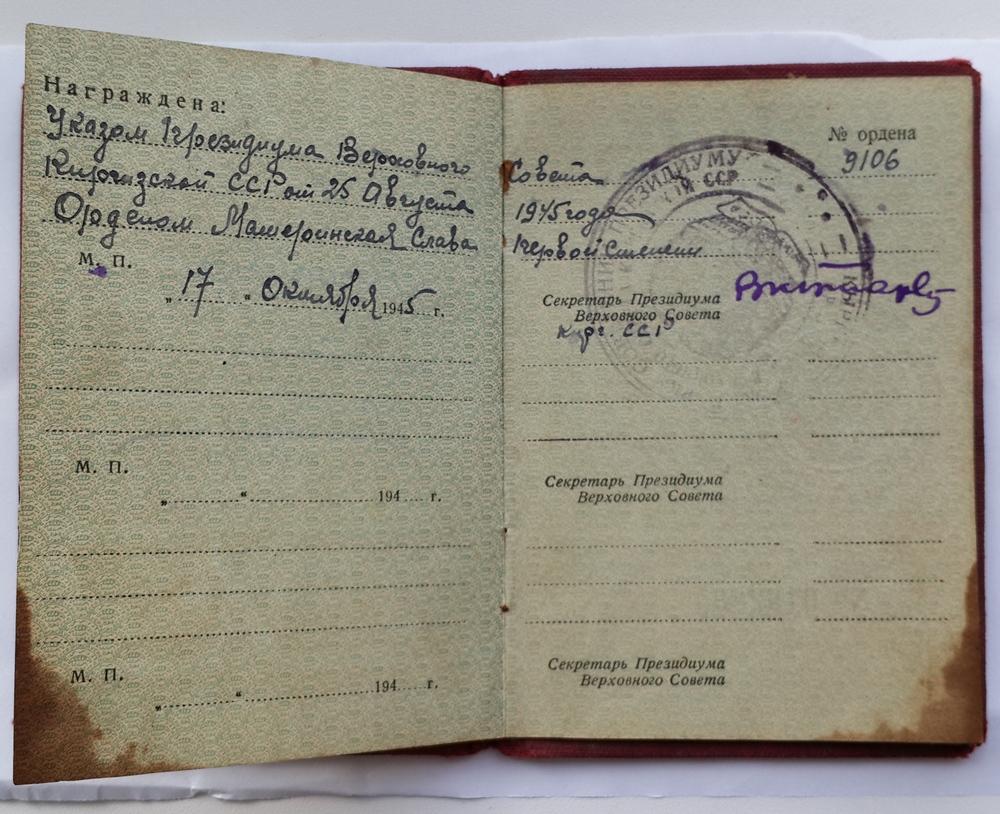 Награждена:
№ ордена
Указом Президиума Верховного Совета 9106
Киргизской ССР от 25 Августа 1945 года
Орденом Материнская Слава Первой степени
М. П.
„ 17 “ Октября 1945 г.
Секретарь Президиума
Верховного Совета
Кирг. ССР
ПРЕЗИДИУМУ
ССР
М. П.
„ “ 194 г.
Секретарь Президиума
Верховного Совета
М. П.
„ “ 194 г.
Секретарь Президиума
Верховного Совета